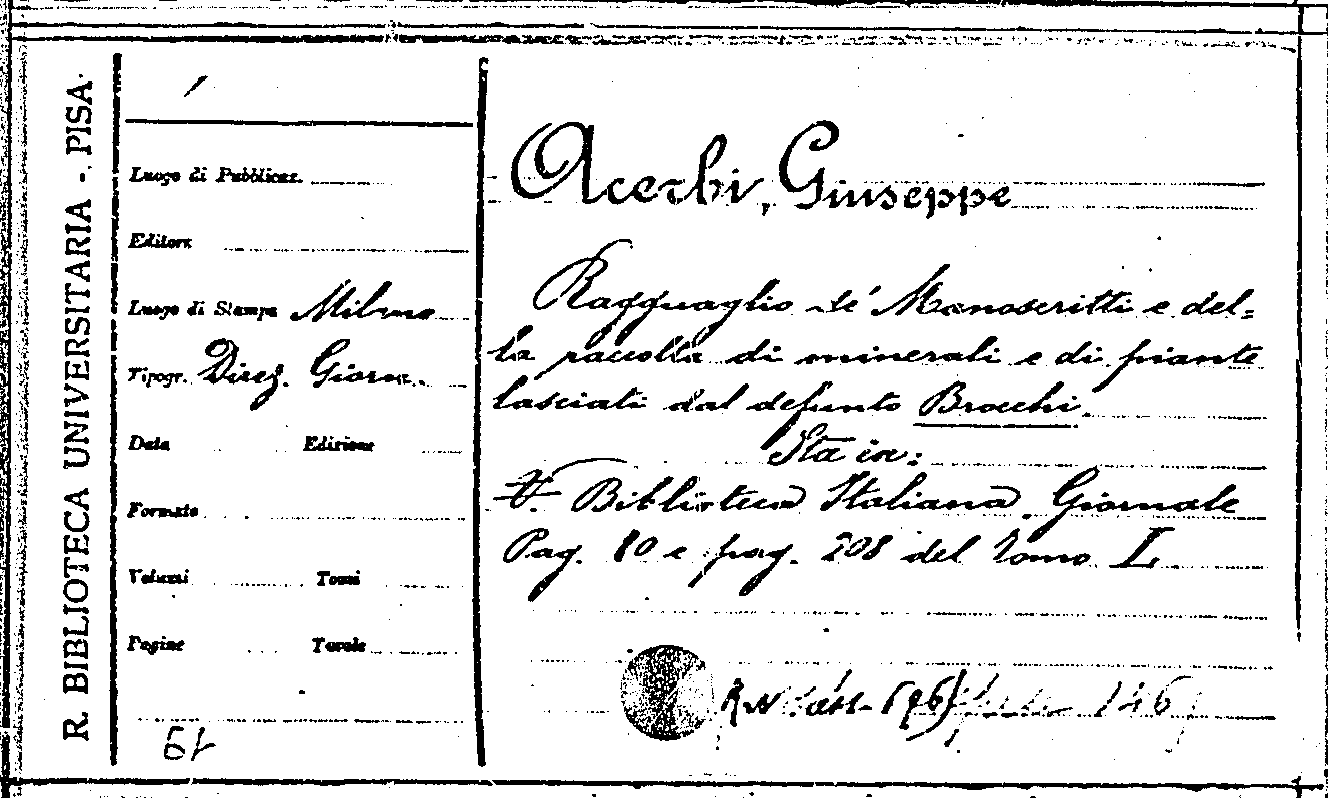 R. BIBLIOTECA UNIVERSITARIA - PISA
Luogo di Pubblicaz.
Editore
Luogo di Stampa Milano
Tipogr. Direz. Giorn.
Data Edizione
Formato
Volumi Tomi
Pagine Tavole
61
Acerbi, Giuseppe
Ragguaglio de' Manoscritti e del=
la raccolta di minerali e di piante
lasciati dal defunto Brocchi.
Sta in:
V. Biblioteca Italiana. Giornale
Pag. 80 e pag. 208 del Tomo L
146